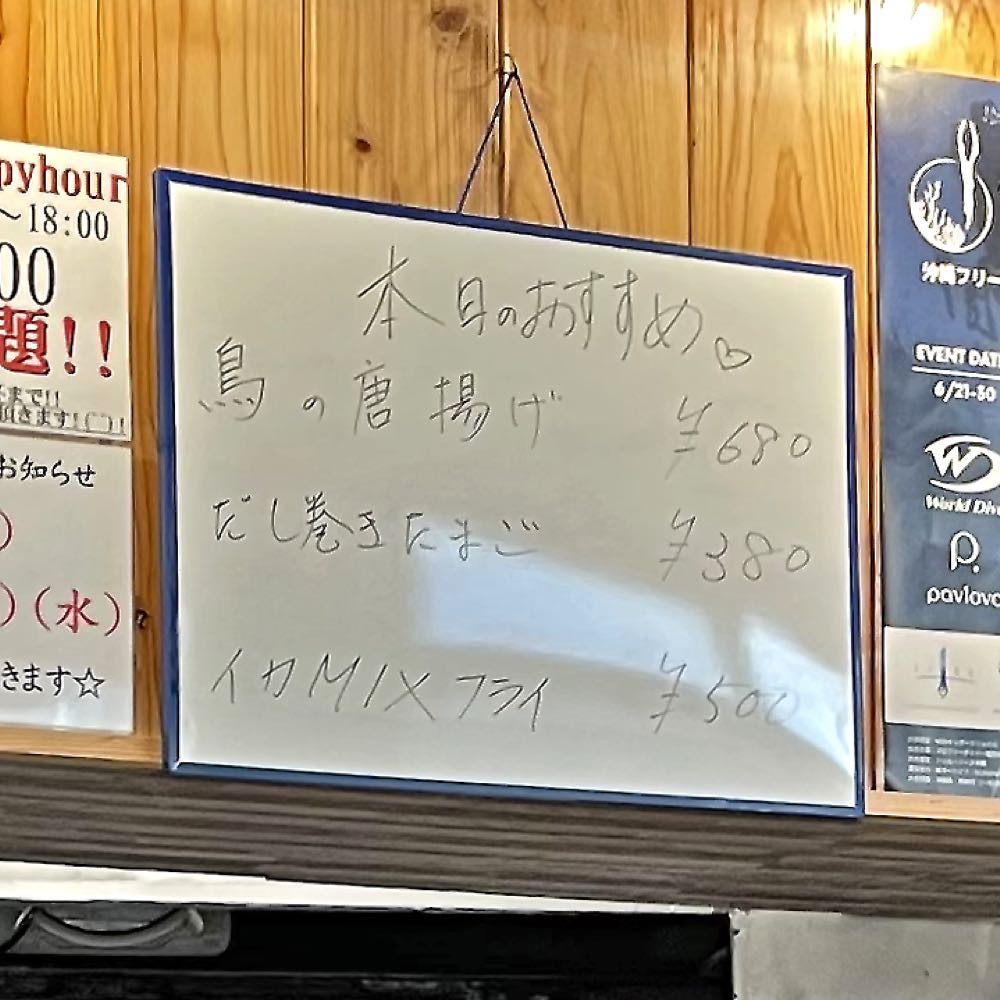 pyhour
～18:00
00
題!!
まで!!
頂きます!(^^)!
お知らせ
)
)(水)
きます☆
本日のおすすめ♡
鳥の唐揚げ ¥680
だし巻きたまご ¥380
イカMIXフライ ¥500
沖縄フリー
EVENT DAT
6/21-30
World Div
p.
pavlova